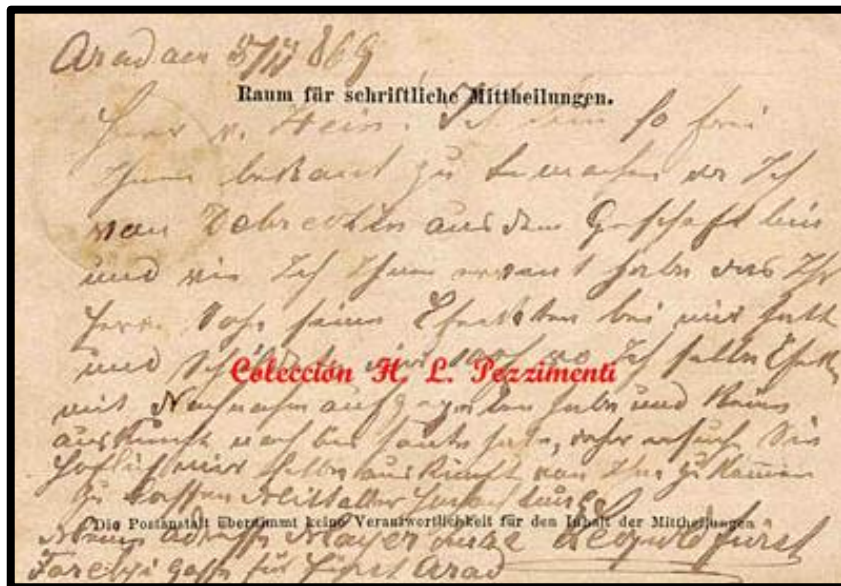 Arad den 5/11 869
Raum für schriftliche Mittheilungen.
Herr v. Hein. Ich bin so frei
Ihnen bekant zu machen das Ich
von Debreczin aus dem Geschaft bin
und wie Ich Ihnen habe das Ihr
Herr Sohn seine Efeckten bei mir hatt
und Ich selbe Efeckten
Colección H. L. Pezzimenti
mit Nachnahm aufgegeben habe und keine
auskunft noch bis heute habe, daher ersuche Sie
hoflich mir selbe auskunft von Ihn zu kommen
zu lassen Mitt aller
Die Postanstalt übernimmt keine Verantwortlichkeit für den Inhalt der Mittheilungen
Meine Adresse Mayer Leopold Fürst
gasse für Fürst Arad